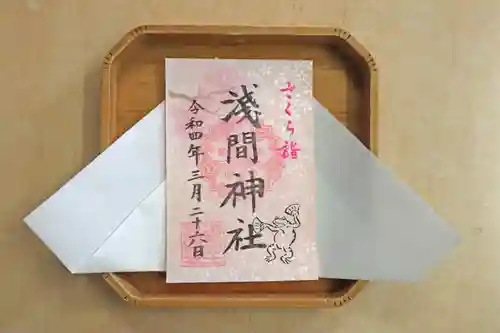 さくら詣
淺間神社
令和四年三月二十六日